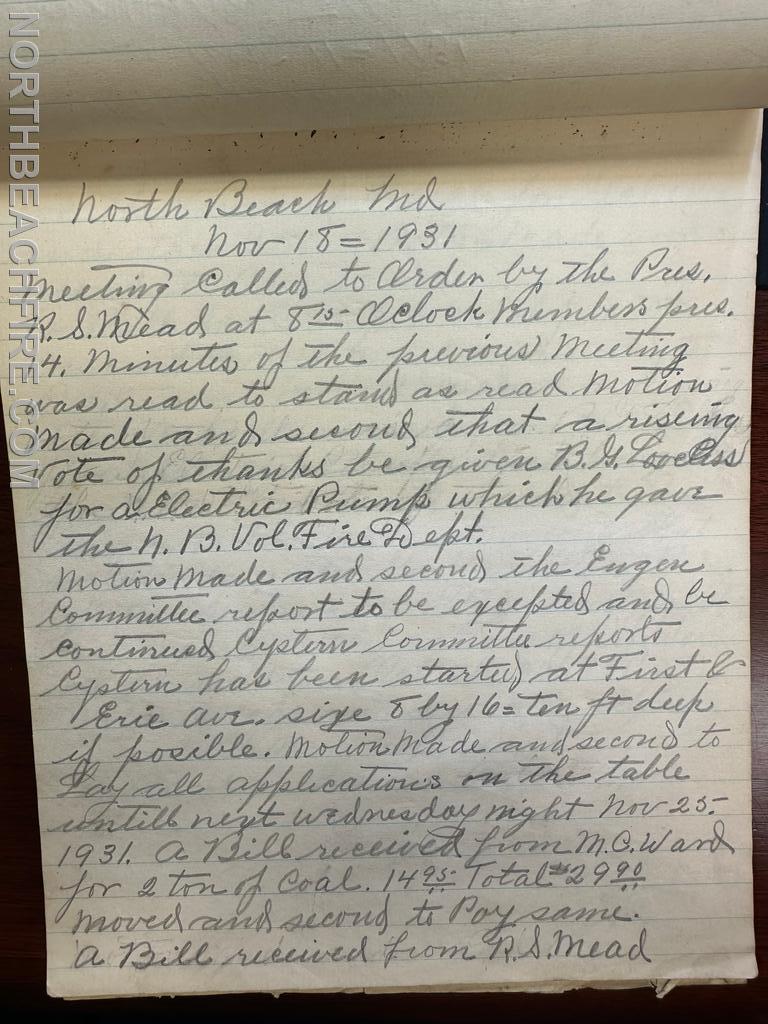 NORTHBEACHFIRE.COM
North Beach Md
Nov 18=1931
Meeting Called to Order by the Pres.
R.S. Mead at 8 15 Oclock Members pres.
4. Minutes of the previous Meeting
was read to stand as read Motion
Made and second that a rising
Vote of thanks be given B.G. Loveless
for a Electric Pump which he gave
the N.B. Vol. Fire Dept.
Motion Made and second the Engen
Committee report to be excepted and be
continued Cystern Committee reports
Cystern has been started at First &
Erie Ave. size 8 by 16= ten ft deep
if posible. Motion Made and second to
Lay all applications on the table
untill next wednesday night Nov 25-
1931. A Bill received from M.C. Ward
for 2 ton of Coal. 14 95 Total $29 90
Moved and second to Pay same.
A Bill received from R.S. Mead